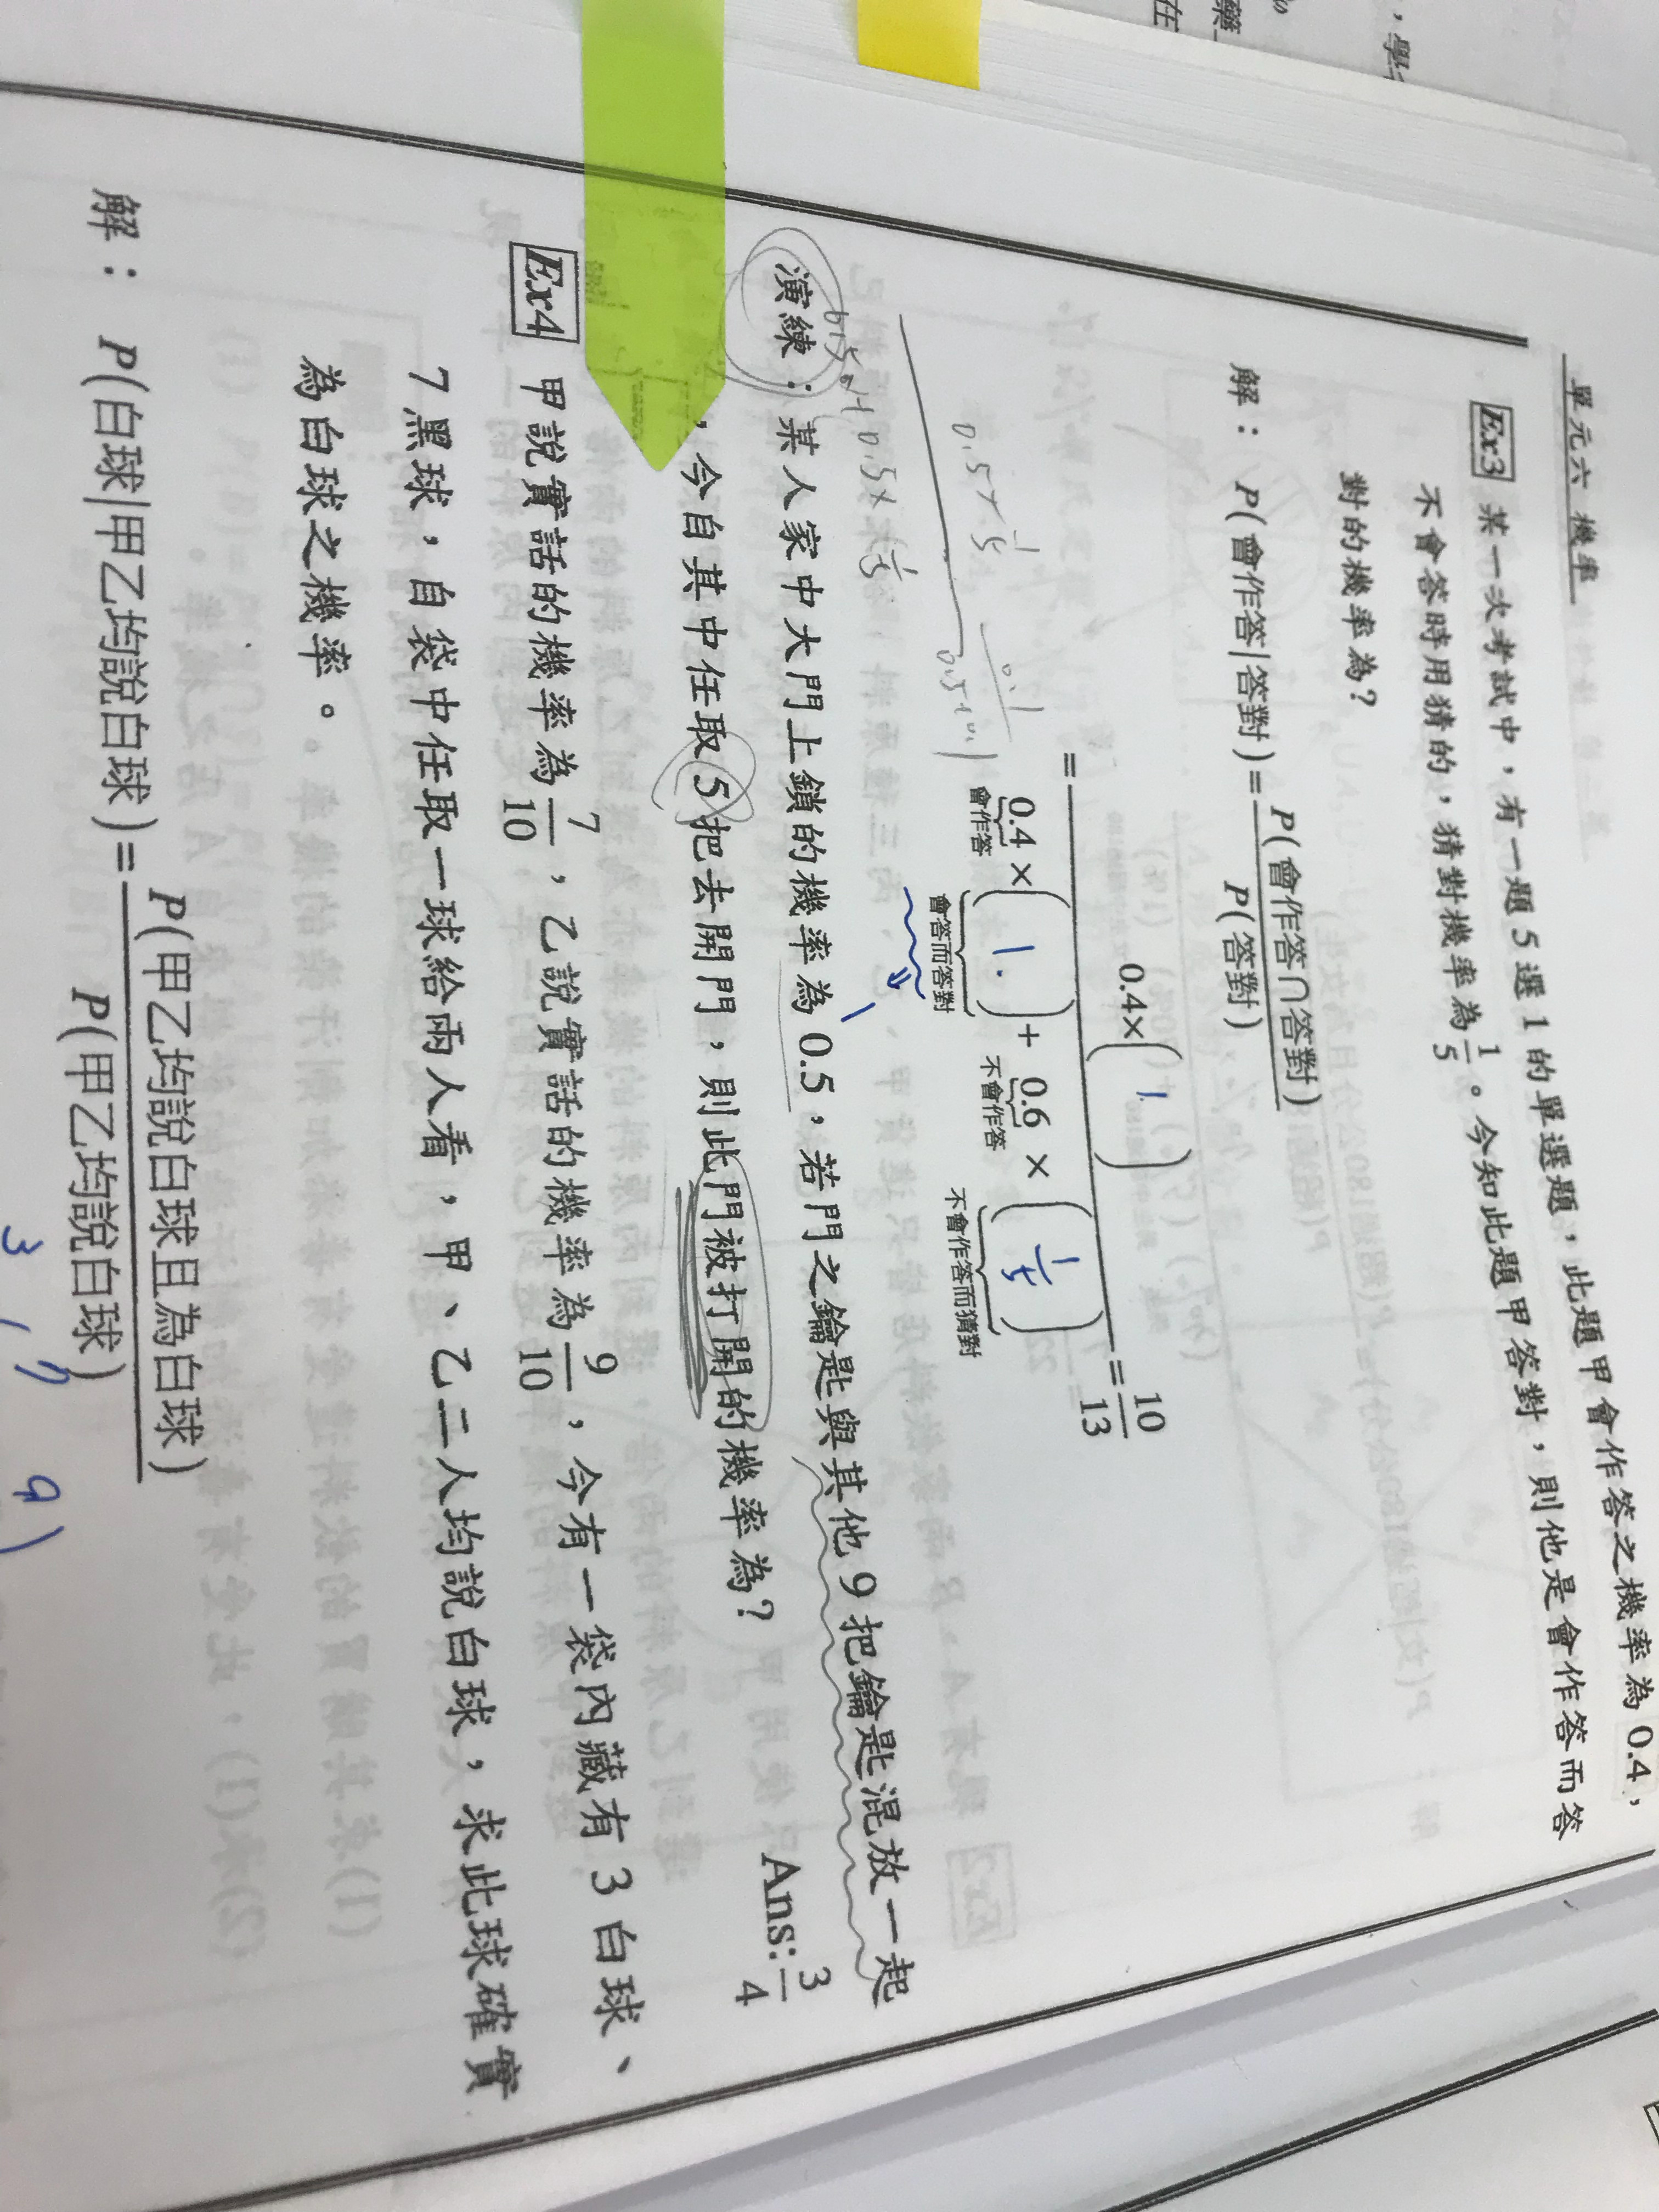 單元六 機率
Ex3 某一次考試中，有一題 5 選 1 的單選題，此題甲會作答之機率為 0.4，
不會答時用猜的，猜對機率為 1/5。今知此題甲答對，則他是會作答而答
對的機率為？
解： P(會作答|答對)= P(會作答∩答對) / P(答對)
= 0.4×( 1. ) / 0.4 × ( 1. ) + 0.6 × ( 1/5 ) = 10/13
會作答 會答而答對 不會作答 不會作答而猜對
0.5×1/5
0.1
0.5+0.1
0.5×1/5
演練：某人家中大門上鎖的機率為 0.5，若門之鑰匙與其他 9 把鑰匙混放一起
，今自其中任取 5 把去開門，則此門被打開的機率為？ Ans: 3/4
Ex4 甲說實話的機率為 7/10，乙說實話的機率為 9/10，今有一袋內藏有 3 白球、
7 黑球，自袋中任取一球給兩人看，甲、乙二人均說白球，求此球確實
為白球之機率。
解： P(白球|甲乙均說白球)= P(甲乙均說白球且為白球) / P(甲乙均說白球)